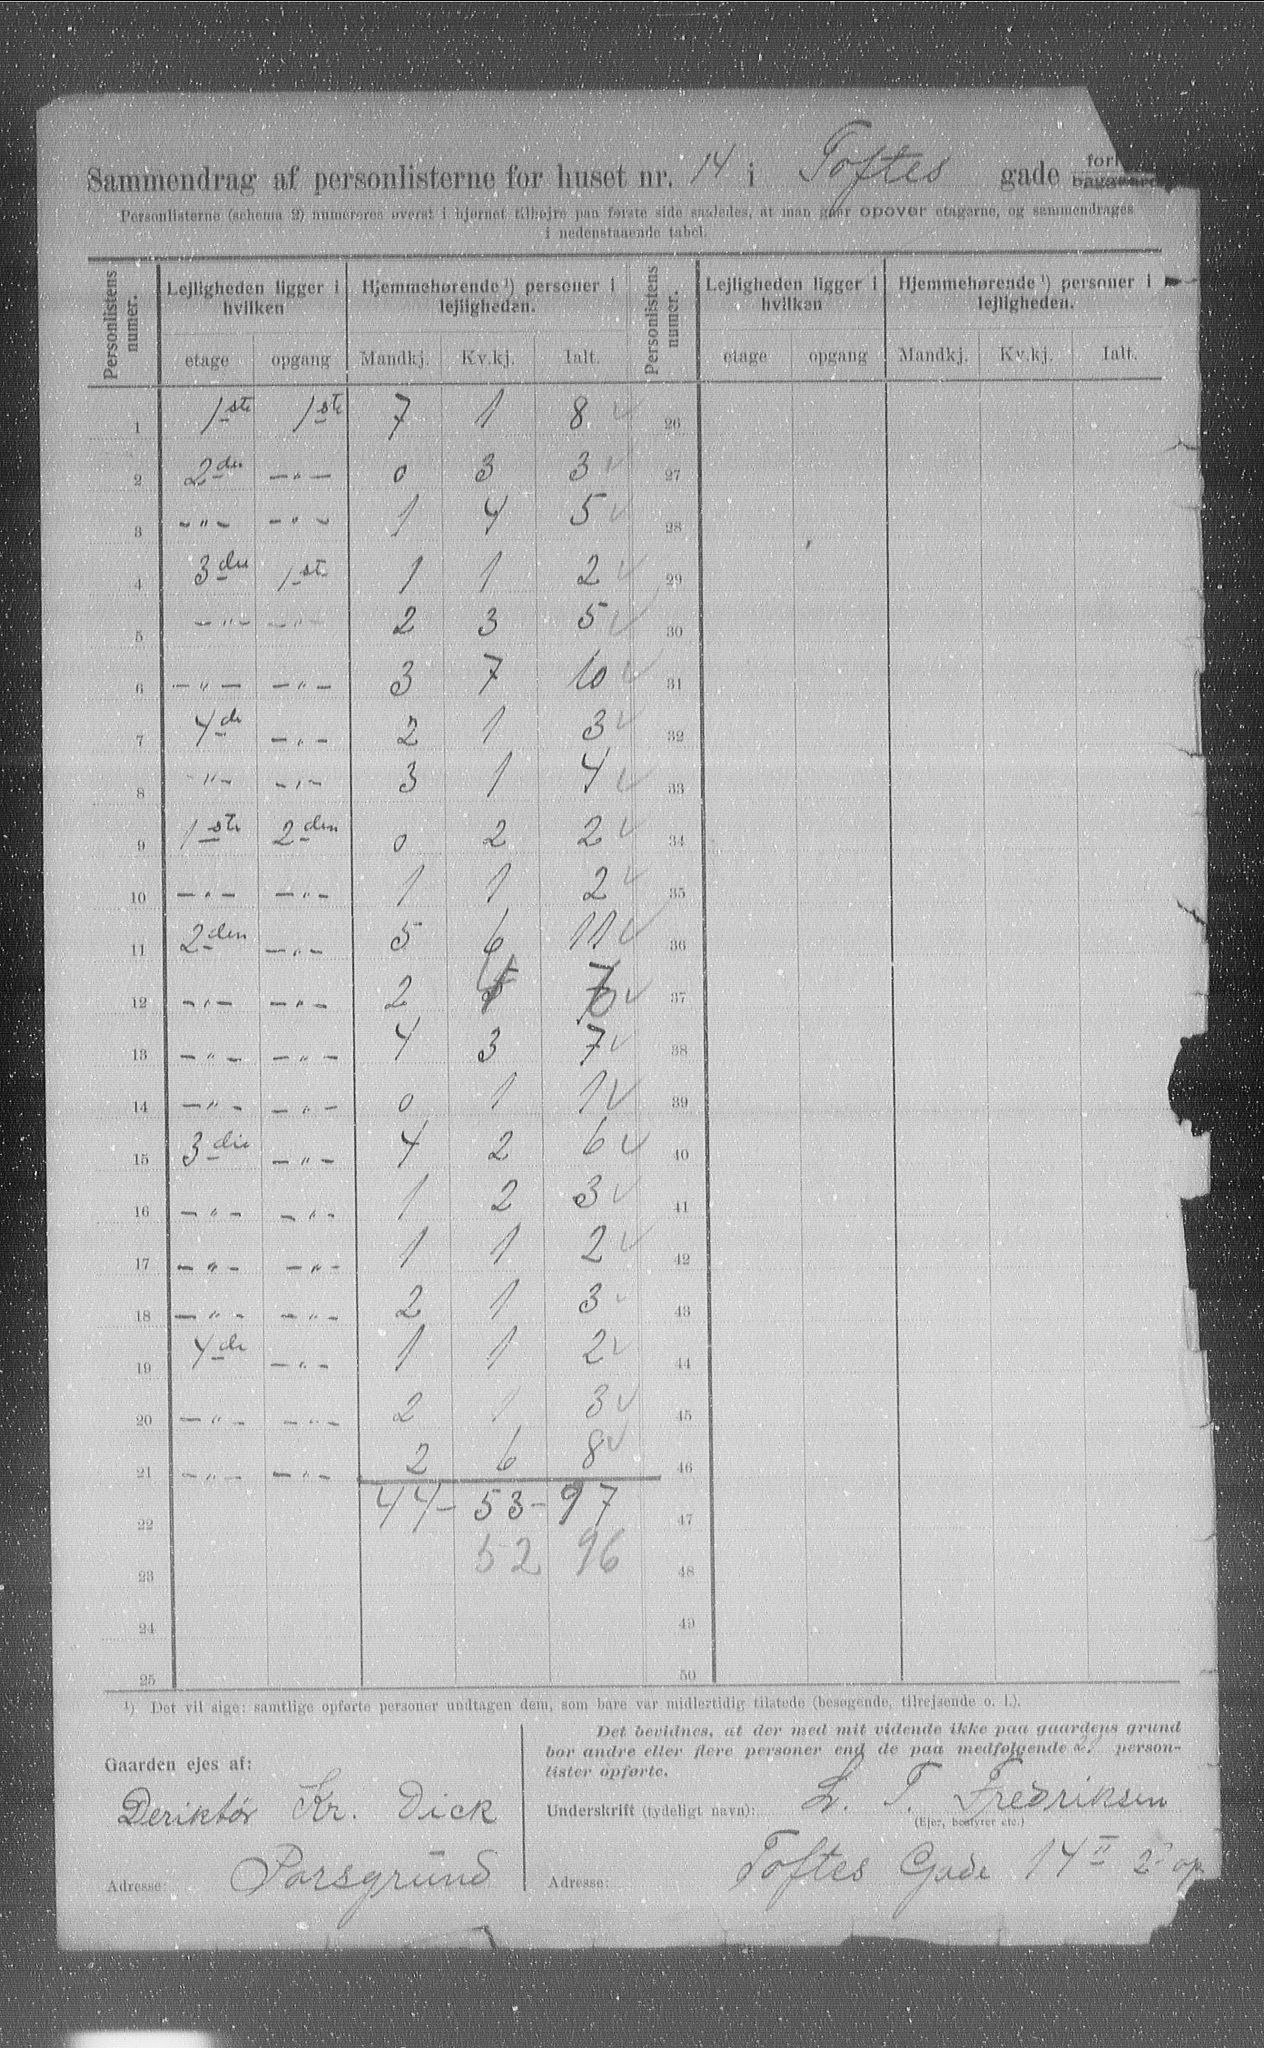 Sammendrag af personlisterne for huset nr. 14 i Toftes gade
Personlisterne (schema 2) numereres øverst i hjørnet tilhøjre paa første side saaledes, at man gaar opover etagerne, og sammendrages
i nedenstaaende tabel.
Personlistens numer. Lejligheden ligger i hvilken Hjemmehørende ¹) personer i lejligheden. Personlistens numer. Lejligheden ligger i hvilken Hjemmehørende ¹) personer i lejligheden.
etage opgang Mandkj. Kv.kj. Ialt. etage opgang Mandkj. Kv.kj. Ialt.
1 1ste 1ste 7 1 8 ✓ 26
2 2den —〃— 0 3 3 ✓ 27
3 —〃— —〃— 1 4 5 ✓ 28
4 3die 1ste 1 1 2 ✓ 29
5 —〃— —〃— 2 3 5 ✓ 30
6 —〃— —〃— 3 7 10 ✓ 31
7 4de —〃— 2 1 3 ✓ 32
8 —〃— —〃— 3 1 4 ✓ 33
9 1ste 2den 0 2 2 ✓ 34
10 —〃— —〃— 1 1 2 ✓ 35
11 2den —〃— 5 6 11 ✓ 36
12 —〃— —〃— 2 ✓ 37
13 —〃— —〃— 4 3 7 ✓ 38
14 —〃— —〃— 0 1 1 ✓ 39
15 3die —〃— 4 2 6 ✓ 40
16 —〃— —〃— 1 2 3 ✓ 41
17 —〃— —〃— 1 1 2 ✓ 42
18 —〃— —〃— 2 1 3 ✓ 43
19 4de —〃— 1 1 2 ✓ 44
20 —〃— —〃— 2 1 3 ✓ 45
21 —〃— —〃— 2 6 8 ✓ 46
22 44 — 53 — 97 47
23 52 96 48
24 49
25 50
¹) Det vil sige: samtlige opførte personer undtagen dem, som bare var midlertidig tilstede (besøgende, tilrejsende o. l.).
Gaarden ejes af:
Deriktör Kr. Dick
Adresse: Porsgrund
Det bevidnes, at der med mit vidende ikke paa gaardens grund
bor andre eller flere personer end de paa medfølgende person-
lister opførte.
Underskrift (tydeligt navn): L. T. Fredriksen
(Ejer, bestyrer etc.)
Adresse: Toftes Gade 14 II 2 op